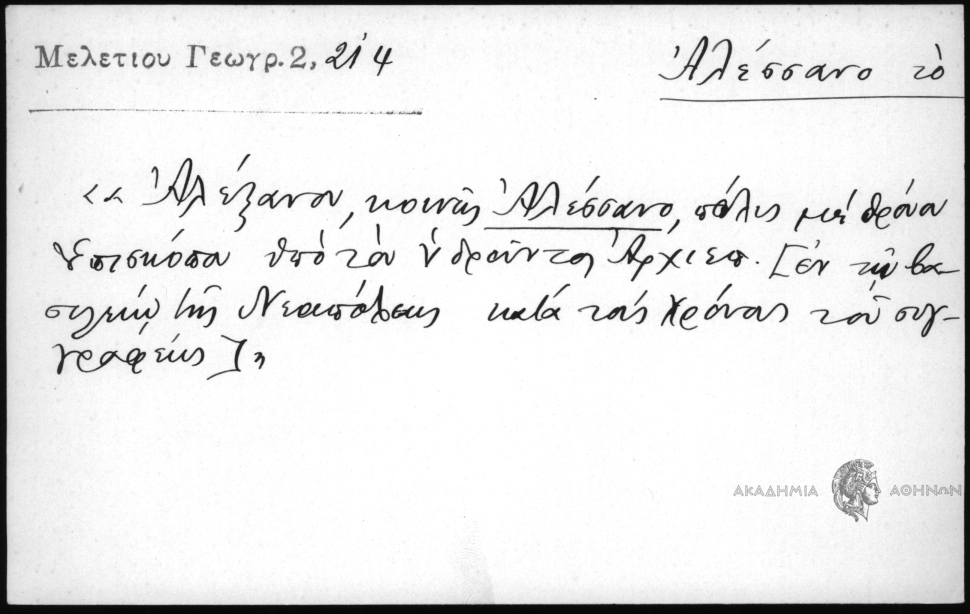 Μελετίου Γεωγρ. 2, 214
Ἀλέσσανο τὸ
«Ἀλέξανον, κοινῶς Ἀλέσσανο, πόλις μὲ θρόνον
Ἐπισκόπου ὑπὸ τὸν Ὑδροῦντος Ἀρχιεπ. [ἐν τῷ βα-
σιλείῳ τῆς Νεαπόλεως κατὰ τοὺς χρόνους τοῦ συγ-
γραφέως]»
ΑΚΑΔΗΜΙΑ ΑΘΗΝΩΝ